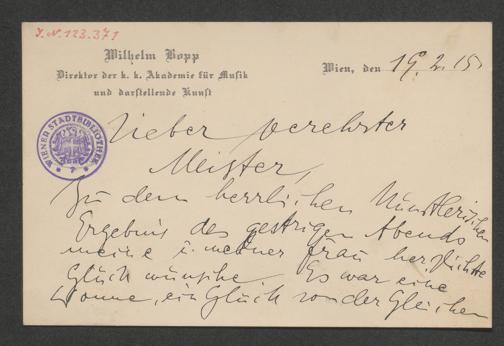 J.N. 123.371
Wilhelm Bopp
Direktor der k. k. Akademie für Musik
und darstellende Kunst
Wien, den 19. 2. 15.
WIENER STADTBIBLIOTHEK
Lieber verehrter
Meister,
Zu dem herrlichen künstlerischen
Ergebnis des gestrigen Abends
meine u. meiner Frau herzlichste
Glückwünsche. Es war eine
Wonne, ein Glück sondergleichen